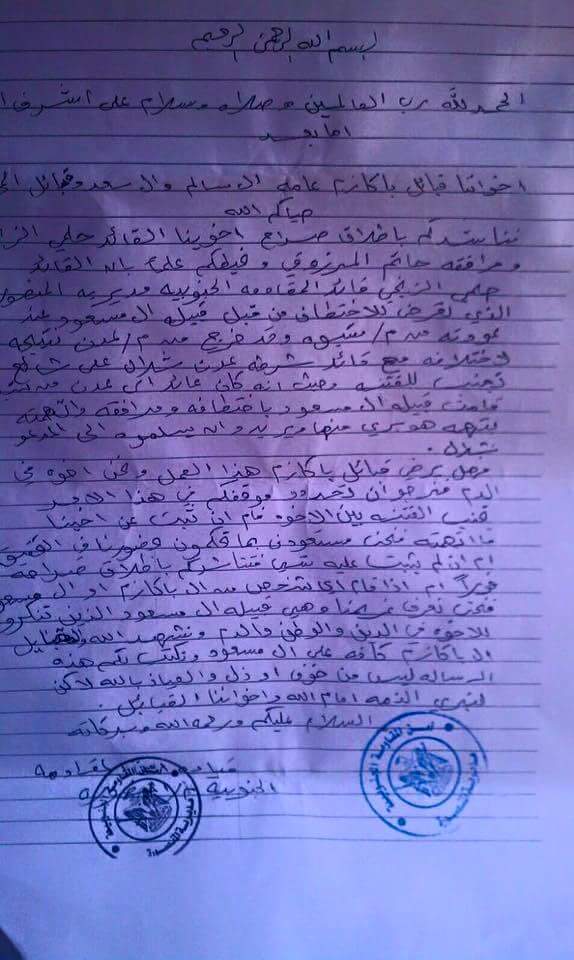 بسم الله الرحمن الرحيم
الحمد لله رب العالمين وصلاه وسلام على اشرف
اما بعد
اخواننا قبائل باكازم عامه ال سالم وال سعد وقبائل
حياكم الله
نناشدكم باطلاق صراح اخوينا القائد حلمي
ومرافقه حاتم المرزوقي ونفيدكم علماً بانه القائد
حلمي الزنجي قائد المقاومه الجنوبيه مديريه المنصور
الذي تعرض للاختطاف من قبل قبيله ال مسعود عند
عودته من م/ شبوه وقد خرج من م/ عدن نتيجه
لاختلافه مع قائد شرطه عدن شلال علي شائع
تجنب للفتنه وحيث انه كان عائد الى عدن من
قامت قبيله ال مسعود باختطافه ومرافقه واتهمته
بتهمه هو بري منها ويريدوا انه يسلموه الى المدعو
شلال.
وهل يرضي قبائل باكازم هذا العمل ونحن اخوه في
الدم فنرجو ان تحددو موقفكم في هذا الامر
تجنب الفتنه بين الاخوه فأم ان ثبت عن اخينا
ما اتهمته فنحن مستعودن بما تحكمون وحضورنا في
ام ان لم يثبت عليه شي فنناشدكم باطلاق صراحه
فوراً ام اذا قام اي شخص من ال باكازم او ال
فنحن نعرف غريمنا وهي قبيله ال مسعود الذين تنكرو
الاخوه في الدين والوطن والدم ونشهد الله
ال باكازم كافه على ال مسعود ونكتب لكم هذه
الرساله ليس من خوف او ذل والعياذ بالله لاكن
لنبري الذمه امام الله واخواننا القبائل.
السلام عليكم ورحمه الله وبركاته
الجنوبية